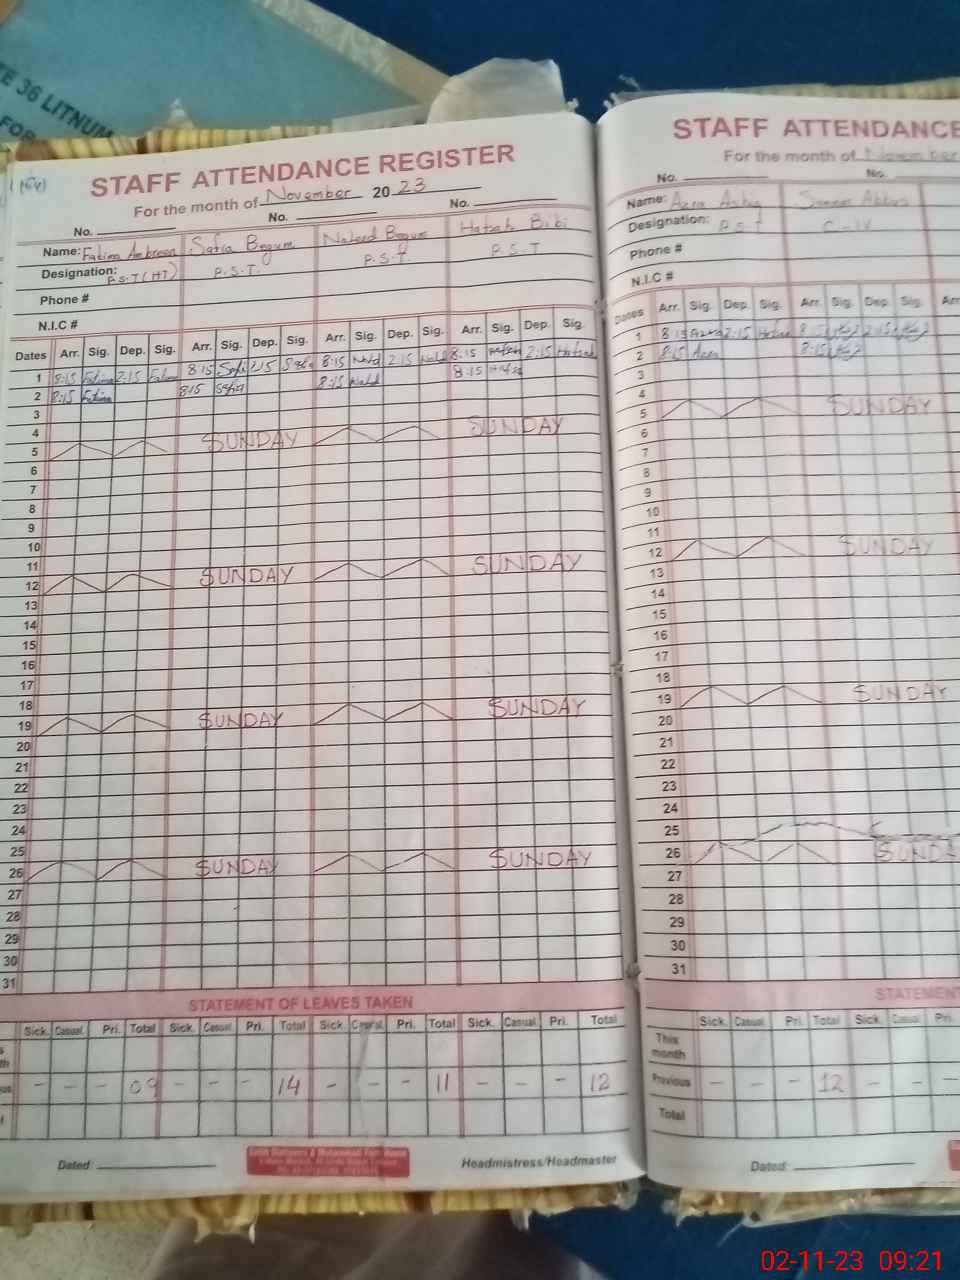 TE 36 LITNUM
FOR
STAFF ATTENDANCE REGISTER
For the month of November 2023
No. No. No.
Name: Fatima Ambreen Safia Begum Naheed Begum Hafsah Bibi
Designation: P.S.T (HT) P.S.T. P.S.T. P.S.T
Phone #
N.I.C #
Dates Arr. Sig. Dep. Sig. Arr. Sig. Dep. Sig. Arr. Sig. Dep. Sig. Arr. Sig. Dep. Sig.
1 8:15 Fatima 2:15 Fatima 8:15 Safia 2:15 Safia 8:15 Nahd 2:15 Nahd 8:15 2:15
2 8:15 Fatima 8:15 Safia 8:15 Nahd 8:15
3
4
5 SUNDAY SUNDAY
6
7
8
9
10
11
12 SUNDAY SUNDAY
13
14
15
16
17
18
19 SUNDAY SUNDAY
20
21
22
23
24
25
26 SUNDAY SUNDAY
27
28
29
30
31
STATEMENT OF LEAVES TAKEN
Sick. Casual. Pri. Total Sick. Casual. Pri. Total Sick. Casual. Pri. Total Sick. Casual. Pri. Total
- - - 09 - - - 14 - - - 11 - - - 12
Dated: Headmistress/Headmaster
STAFF ATTENDANCE
For the month of November
No. No.
Name: Azra Ashiq Abbas
Designation: P.S.T C-IV
Phone #
N.I.C #
Dates Arr. Sig. Dep. Sig. Arr. Sig. Dep. Sig. Arr
1 8:15 Azra 2:15 8:15 2:15
2 8:15 Azra 8:15
3
4
5 SUNDAY
6
7
8
9
10
11
12 SUNDAY
13
14
15
16
17
18
19 SUNDAY
20
21
22
23
24
25
26 SUNDA
27
28
29
30
31
STATEMENT
Sick. Casual. Pri. Total Sick. Casual. Pri.
This month
Previous - - - 12 - - -
Total
Dated:
02-11-23 09:21